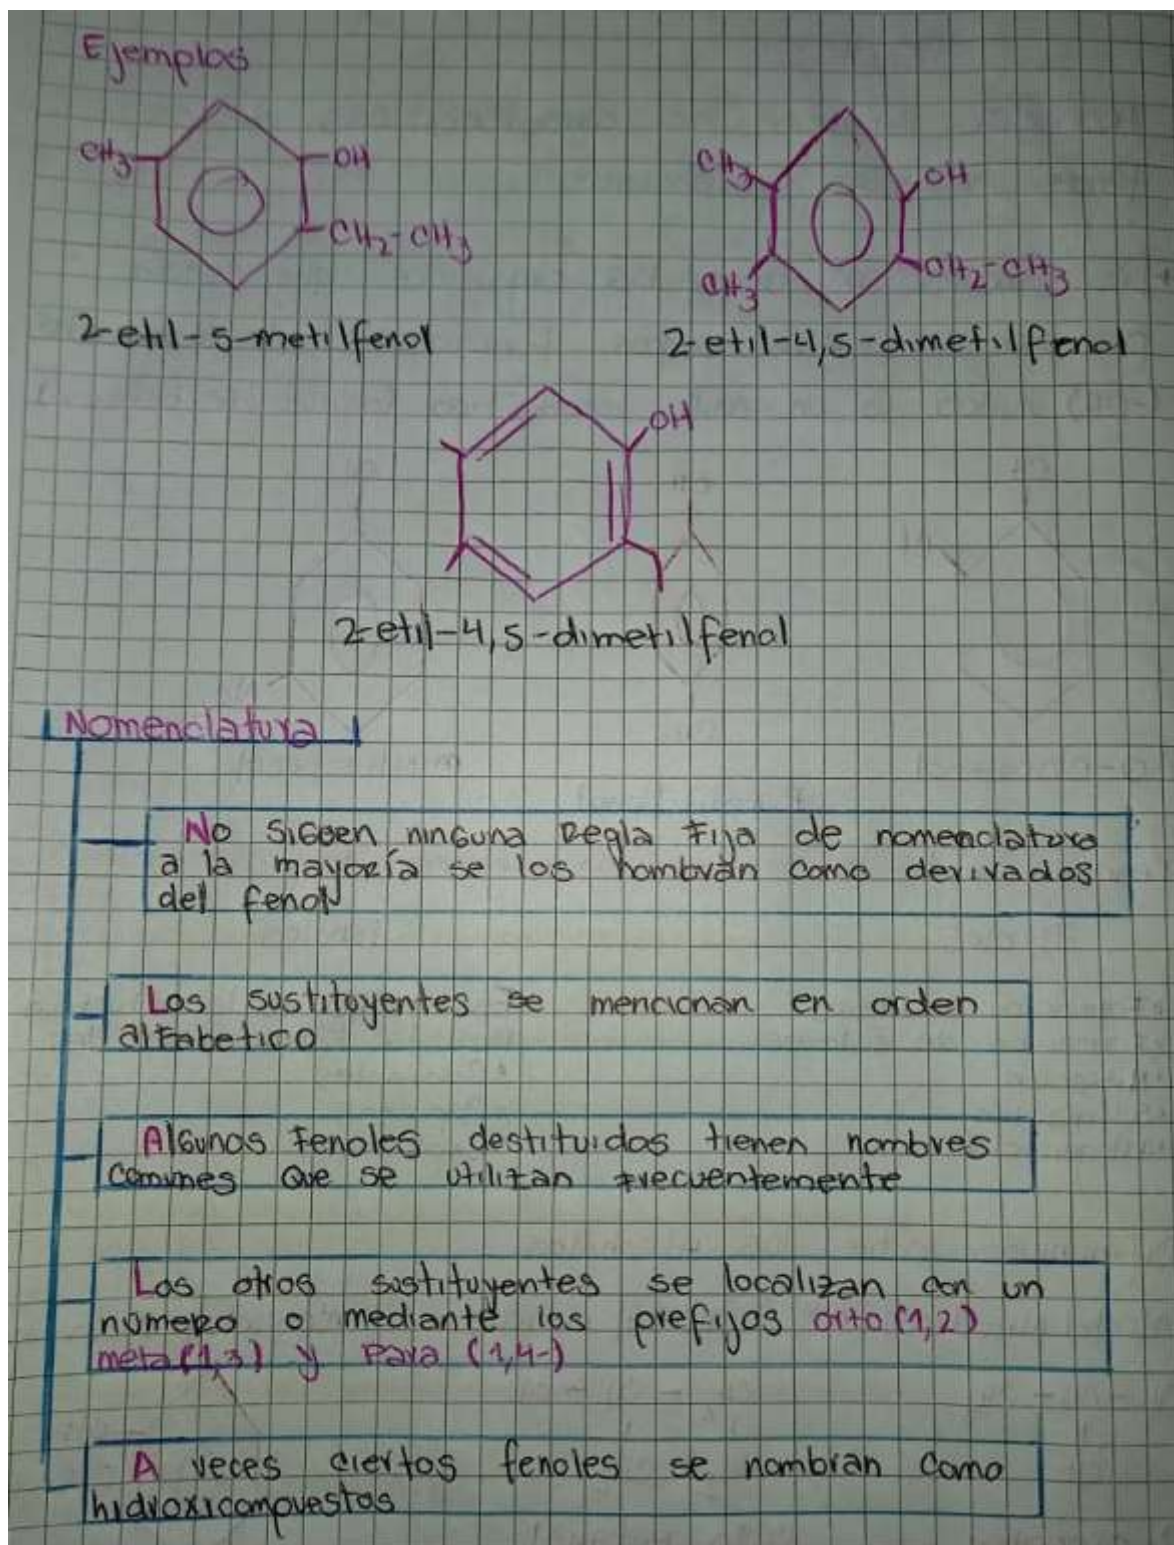 Ejemplos
CH3
OH
CH2-CH3
2-etil-5-metilfenol
CH3
OH
CH3
CH2-CH3
2-etil-4,5-dimetilfenol
OH
2-etil-4,5-dimetilfenol
Nomenclatura
No siguen ninguna regla fija de nomenclatura
a la mayoría se los nombran como derivados
del fenol
Los sustituyentes se mencionan en orden
alfabetico
Algunos fenoles destituidos tienen nombres
comunes que se utilizan frecuentemente
Los otros sustituyentes se localizan con un
número o mediante los prefijos orto (1,2)
meta (1,3) y para (1,4-)
A veces ciertos fenoles se nombran como
hidroxicompuestos